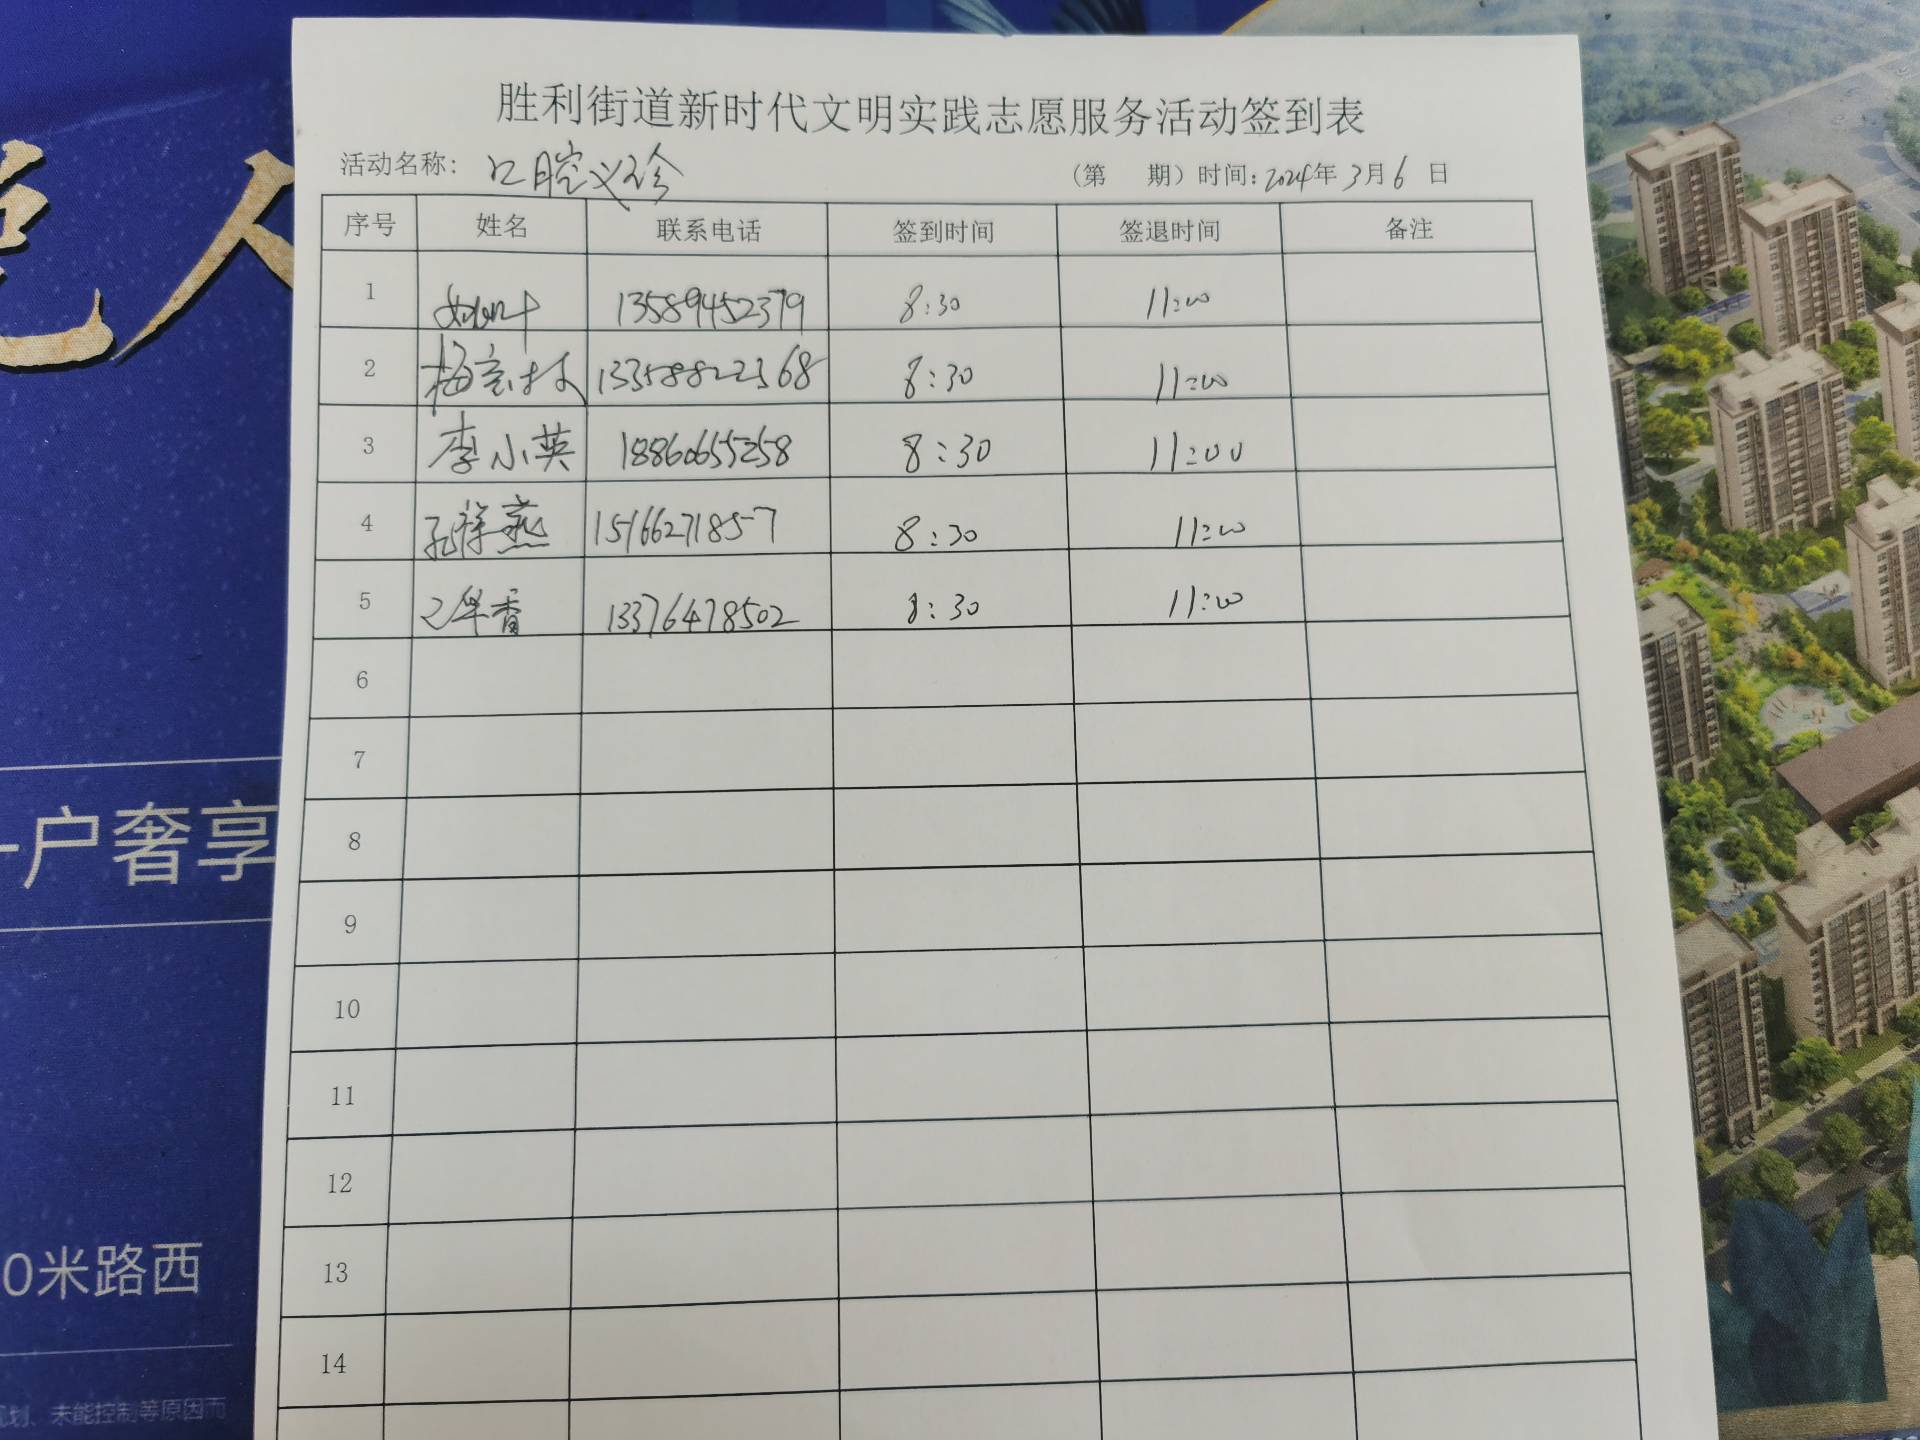 胜利街道新时代文明实践志愿服务活动签到表
活动名称: 口腔义诊 (第 期) 时间: 2024年 3月 6 日
序号 姓名 联系电话 签到时间 签退时间 备注
1 13589452379 8:30 11:00
2 13358822368 8:30 11:00
3 李小英 18860655258 8:30 11:00
4 孔祥燕 15166271857 8:30 11:00
5 华香 13376478502 8:30 11:00
6
7
8
9
10
11
12
13
14
一户奢享
0米路西
划、未能控制等原因而